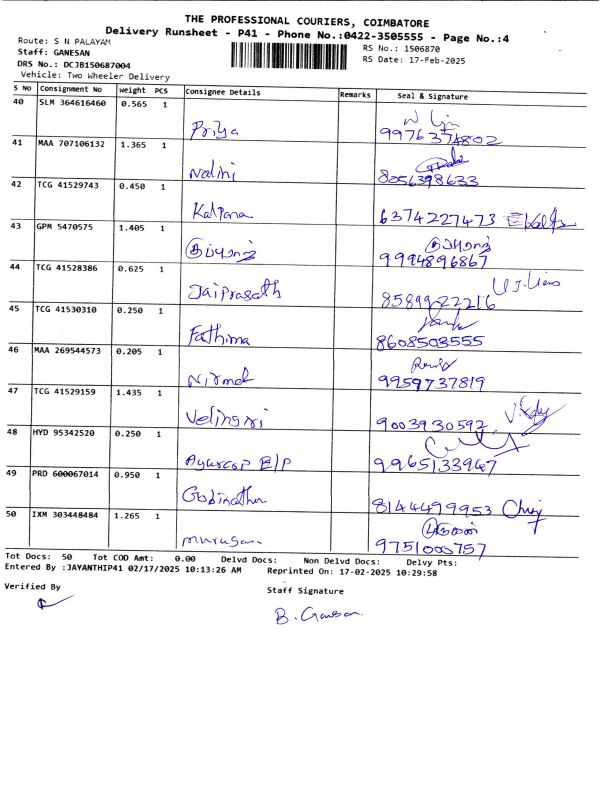 THE PROFESSIONAL COURIERS, COIMBATORE
Delivery Runsheet - P41 - Phone No.:0422-3505555 - Page No.:4
Route: S N PALAYAM
RS No.: 1506870
Staff: GANESAN
RS Date: 17-Feb-2025
DRS No.: DCJB150687004
Vehicle: Two Wheeler Delivery
S No Consignment No Weight PCS Consignee Details Remarks Seal & Signature
40 SLM 364616460 0.565 1
Priya 9976374802
41 MAA 707106132 1.365 1
Nalini 8056398633
42 TCG 41529743 0.450 1
Kalpana 6374227473
43 GPM 5470575 1.405 1
9994896867
44 TCG 41528386 0.625 1
Jaiprasath 8589922216
45 TCG 41530310 0.250 1
Fathima 8608503555
46 MAA 269544573 0.205 1
Nirmal 9959737819
47 TCG 41529159 1.435 1
Velingiri 9003930592
48 HYD 95342520 0.250 1
9965133967
49 PRD 600067014 0.950 1
Gobinathn 8144499953
50 IXM 303448484 1.265 1
Murugan 9751000757
Tot Docs: 50 Tot COD Amt: 0.00 Delvd Docs: Non Delvd Docs: Delvy Pts:
Entered By :JAYANTHIP41 02/17/2025 10:13:26 AM Reprinted On: 17-02-2025 10:29:58
Verified By
Staff Signature
B. Ganesan